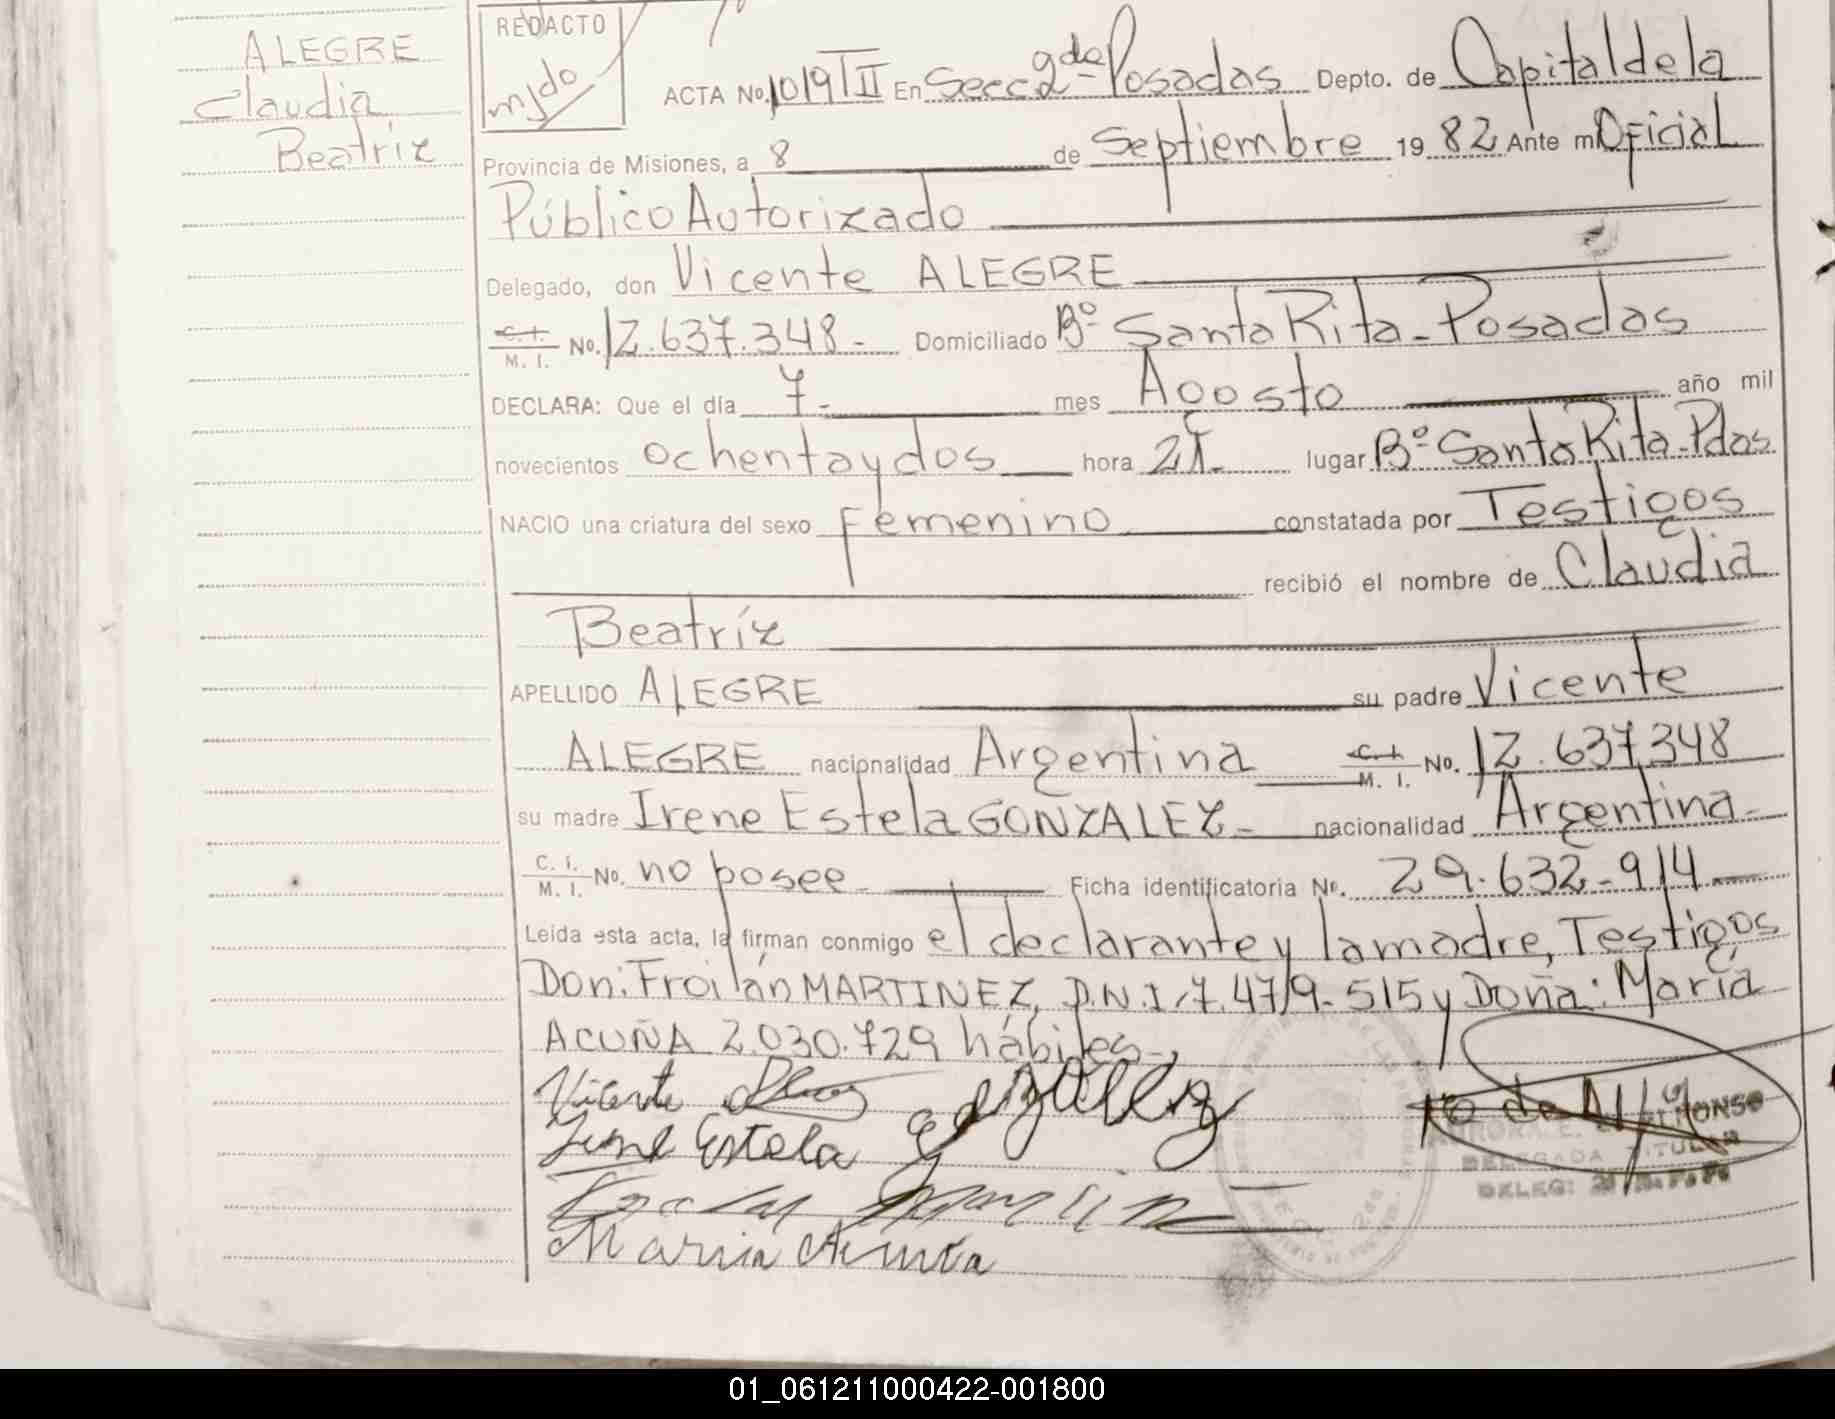 ALEGRE
Claudia
Beatríz
REDACTO
ACTA No. 1019 T II En Secc 2da Posadas Depto. de Capital de la
Provincia de Misiones, a 8 de Septiembre 1982 Ante mí Oficial
Público Autorizado
Delegado, don Vicente ALEGRE
C. I.
M. I. No. 12.637.348- Domiciliado Bº Santa Rita-Posadas
DECLARA: Que el día 7- mes Agosto año mil
novecientos ochenta y dos hora 21- lugar Bº Santa Rita-Pdas.
NACIO una criatura del sexo femenino constatada por Testigos
recibió el nombre de Claudia
Beatríz
APELLIDO ALEGRE su padre Vicente
ALEGRE nacionalidad Argentina C. I. M. I. No. 12.637.348
su madre Irene Estela GONZALEZ- nacionalidad Argentina-
C. I.
M. I. No. no posee Ficha identificatoria Nº. 29.632-914
Leída esta acta, la firman conmigo el declarante y la madre, Testigos
Don: Froilán MARTINEZ, D.N.I. 7.479-515 y Doña: María
ACUÑA 2.030.729 hábiles-
Vicente
Irene Estela Gonzalez
Maria Acuña
DELEGADA TITULAR
01_061211000422-001800